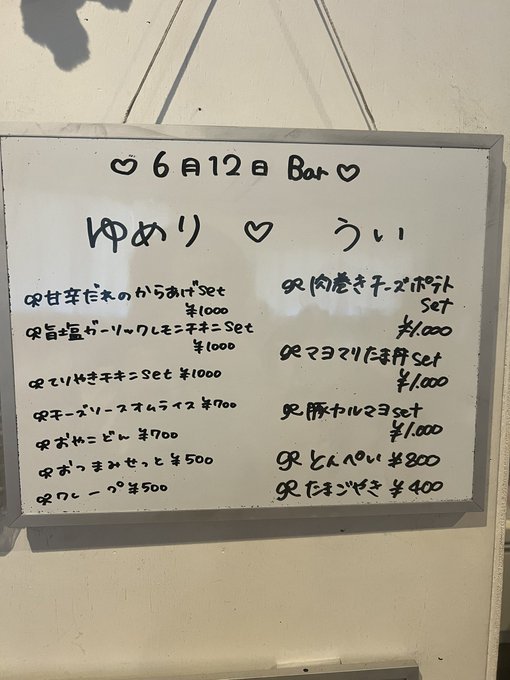 ♡ 6月12日 Bar ♡
ゆめり ♡ うい
甘辛だれのからあげset
¥1000
旨塩ガーリックレモンチキンset
¥1000
てりやきチキンset ¥1000
チーズソースオムライス ¥700
おやこどん ¥700
おつまみせっと ¥500
クレープ ¥500
肉巻きチーズポテト
set
¥1.000
マヨマリたま丼set
¥1.000
豚カルマヨset
¥1.000
とんぺい ¥800
たまごやき ¥400